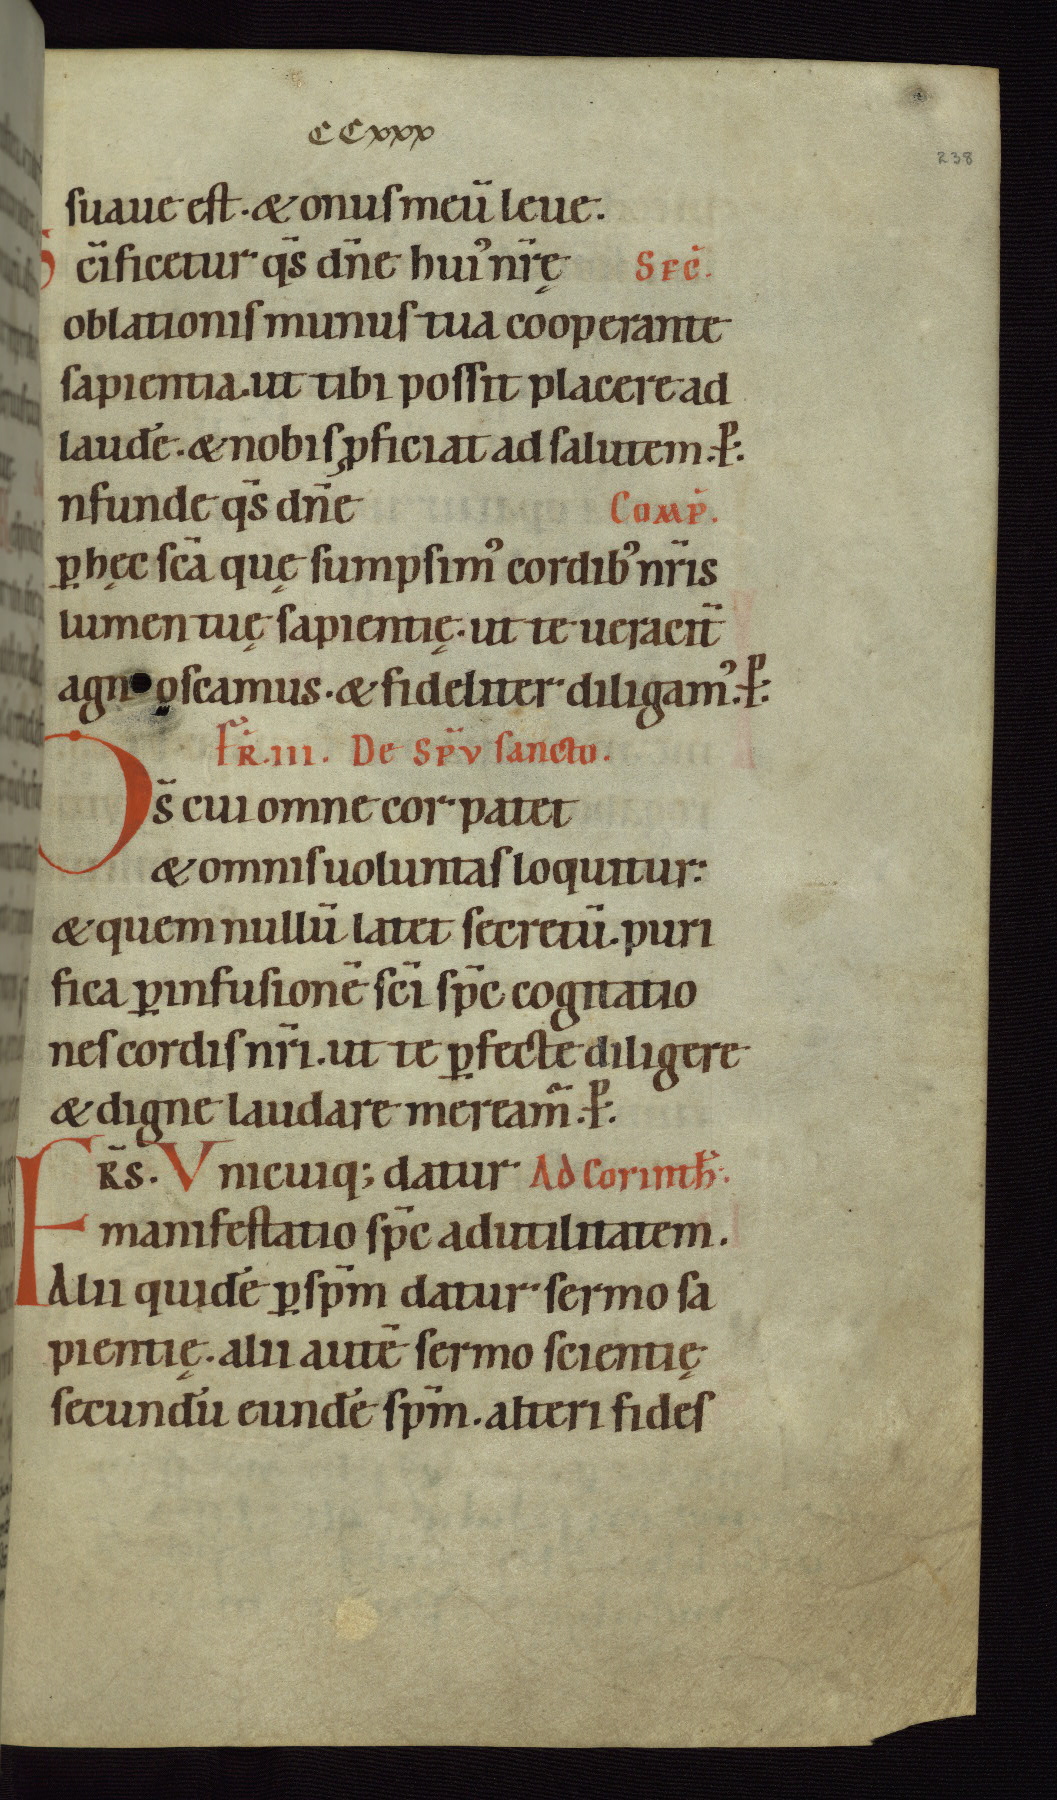 CCxxx
238
suaue est. & onus meū leue.
S c̄ificetur q̄s dn̄e hui᾽ nr̄ę Sec̄.
oblationis munus tua cooperante
sapientia. ut tibi possit placere ad
laudē. & nobis ꝓficiat ad salutem. P.
nfunde q̄s dn̄e Comp̄.
ꝑ hęc sc̄a quę sumpsim᾽ cordib᾽ nr̄is
lumen tuę sapientię. ut te ueracit̄
agnoscamus. & fideliter diligam᾽. P.
Fr̄. III. De Sp̄u sancto.
Ds̄ cui omne cor patet
& omnis uoluntas loquitur:
& quem nullū latet secretū. puri
fica ꝑ infusionē sc̄i sp̄c cogitatio
nes cordis nr̄i. ut te ꝑfecte diligere
& digne laudare meream̄. P.
FR̄S. Vnicuiq; datur Ad Corinth̄.
manifestatio sp̄c ad utilitatem.
Alii quidē ꝑ sp̄m datur sermo sa
pientię. alii autē sermo scientię
secundū eundē sp̄m. alteri fides